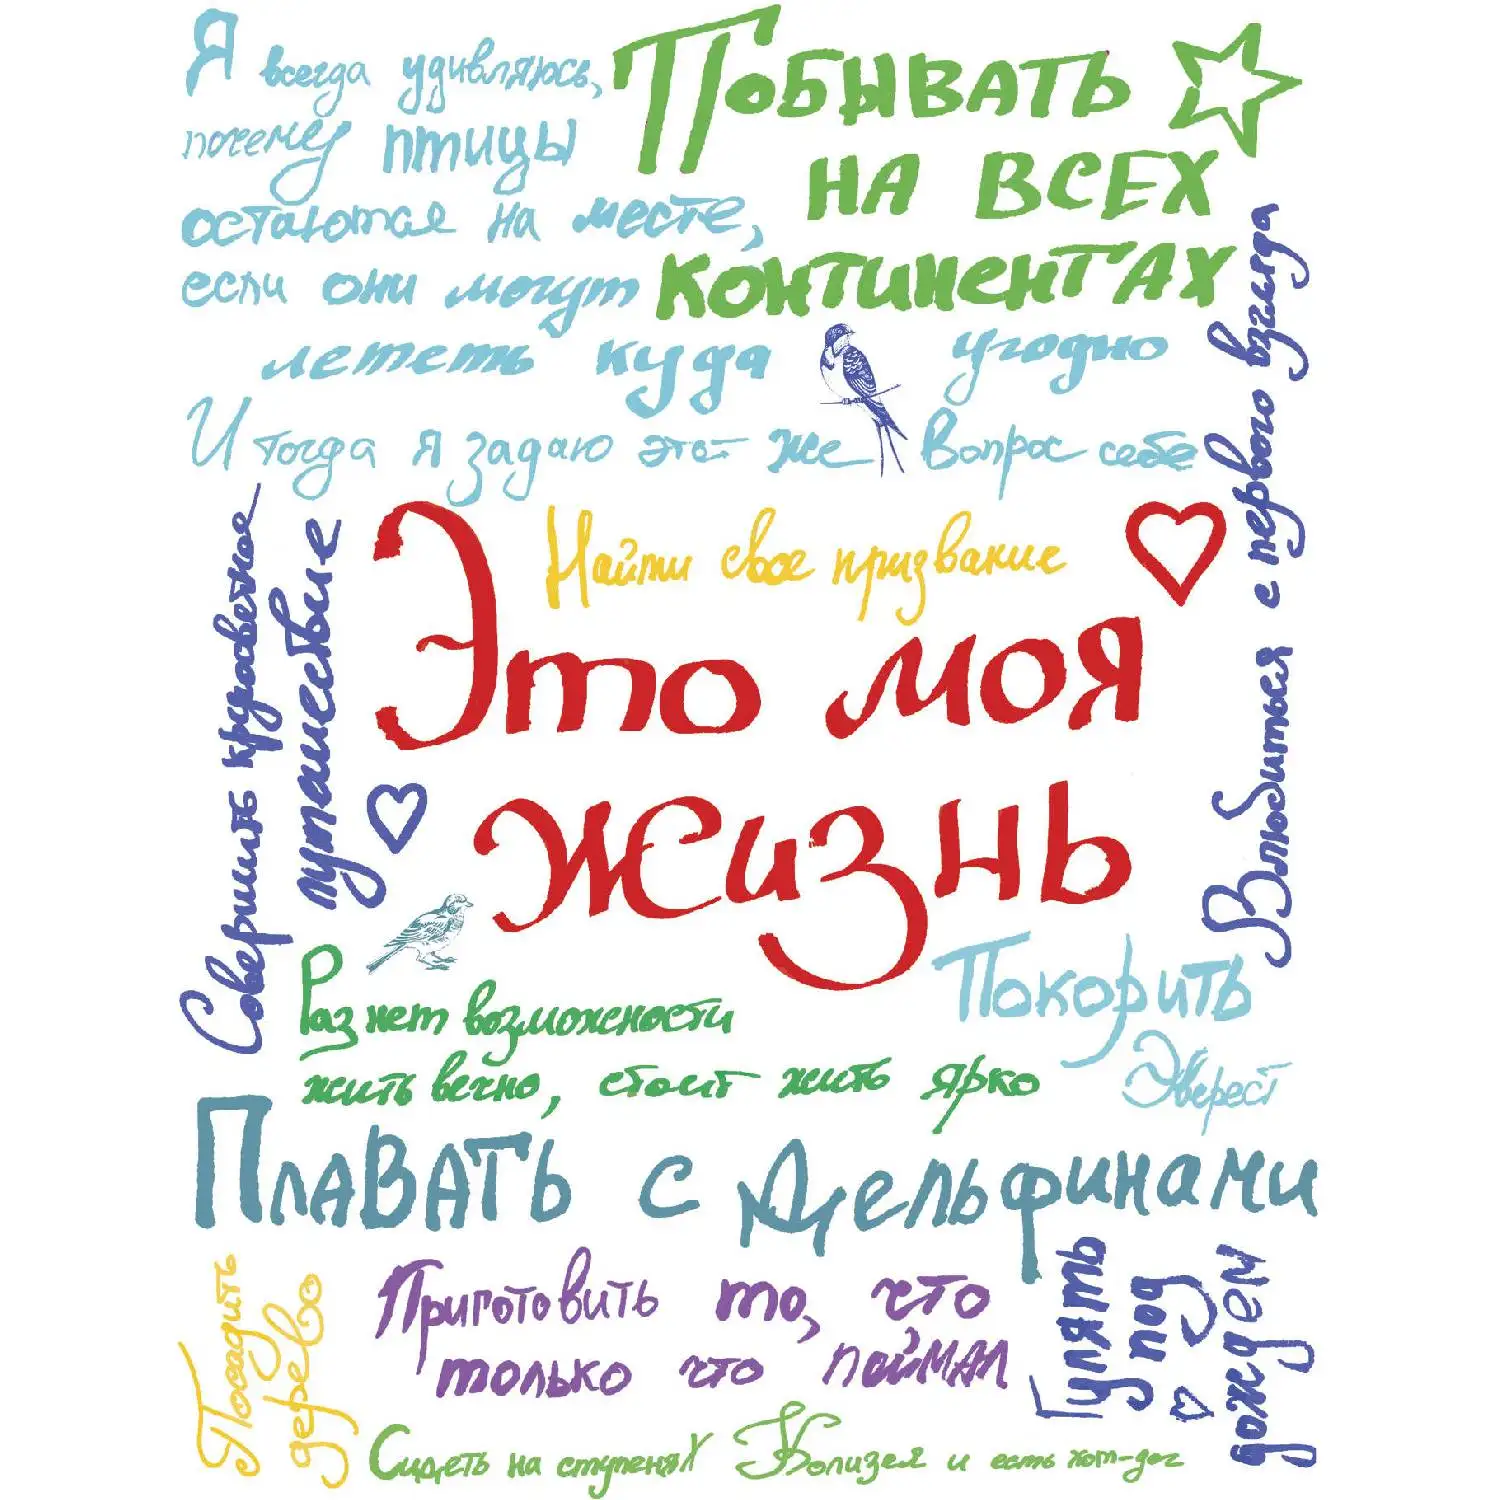 Я всегда удивляюсь,
почему птицы
остаются на месте,
если они могут
лететь куда угодно
И тогда я задаю этот же вопрос себе
Побывать
на всех
континентах
Влюбиться с первого взгляда
Найти свое призвание
Совершить кругосветное
путешествие
Это моя
жизнь
Раз нет возможности
жить вечно, стоит жить ярко
Покорить
Эверест
Плавать с дельфинами
Посадить
дерево
Приготовить то, что
только что поймал
Гулять
под
дождем
Сидеть на ступенях Колизея и есть хот-дог